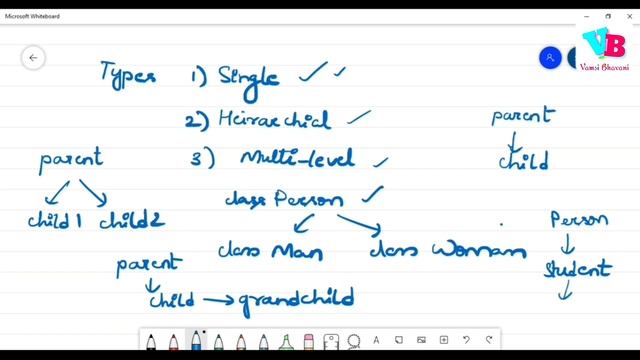 Microsoft Whiteboard
VB
Vamsi Bhavani
Types 1) Single
2) Heirarchial
3) Multi-level
parent
child
parent
child 1 child 2
class Person
class Man class Woman
parent
child → grandchild
Person
Student
A